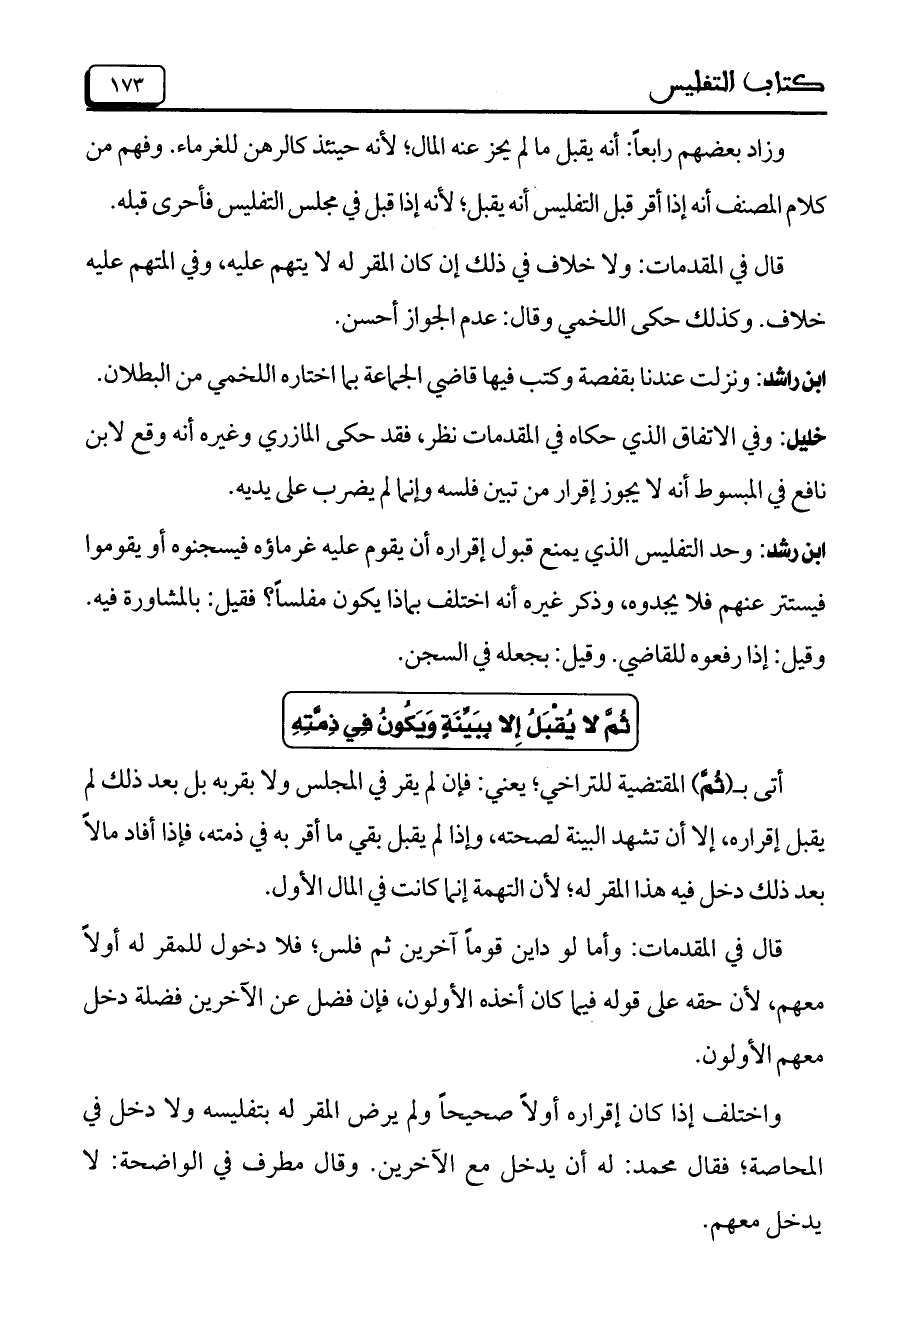 كتاب التفليس
١٧٣
وزاد بعضهم رابعاً: أنه يقبل ما لم يحز عنه المال؛ لأنه حينئذ كالرهن للغرماء. وفهم من
كلام المصنف أنه إذا أقر قبل التفليس أنه يقبل؛ لأنه إذا قبل في مجلس التفليس فأحرى قبله.
قال في المقدمات: ولا خلاف في ذلك إن كان المقر له لا يتهم عليه، وفي المتهم عليه
خلاف. وكذلك حكى اللخمي وقال: عدم الجواز أحسن.
ابن راشد: ونزلت عندنا بقفصة وكتب فيها قاضي الجماعة بما اختاره اللخمي من البطلان.
خليل: وفي الاتفاق الذي حكاه في المقدمات نظر، فقد حكى المازري وغيره أنه وقع لابن
نافع في المبسوط أنه لا يجوز إقرار من تبين فلسه وإنما لم يضرب على يديه.
ابن رشد: وحد التفليس الذي يمنع قبول إقراره أن يقوم عليه غرماؤه فيسجنوه أو يقوموا
فيستتر عنهم فلا يجدوه، وذكر غيره أنه اختلف بماذا يكون مفلساً؟ فقيل: بالمشاورة فيه.
وقيل: إذا رفعوه للقاضي. وقيل: بجعله في السجن.
ثُمَّ لا يُقْبَلُ إِلا بِبَيِّنَةٍ وَيَكُونُ فِي ذِمَّتِهِ
أتى بـ(ثُمَّ) المقتضية للتراخي؛ يعني: فإن لم يقر في المجلس ولا بقربه بل بعد ذلك لم
يقبل إقراره، إلا أن تشهد البينة لصحته، وإذا لم يقبل بقي ما أقر به في ذمته، فإذا أفاد مالاً
بعد ذلك دخل فيه هذا المقر له؛ لأن التهمة إنما كانت في المال الأول.
قال في المقدمات: وأما لو داين قوماً آخرين ثم فلس؛ فلا دخول للمقر له أولاً
معهم، لأن حقه على قوله فيما كان أخذه الأولون، فإن فضل عن الآخرين فضلة دخل
معهم الأولون.
واختلف إذا كان إقراره أولاً صحيحاً ولم يرض المقر له بتفليسه ولا دخل في
المحاصة؛ فقال محمد: له أن يدخل مع الآخرين. وقال مطرف في الواضحة: لا
يدخل معهم.